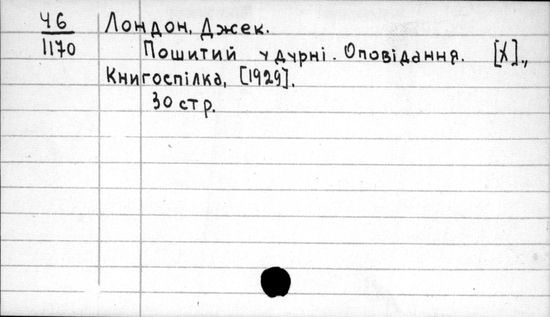 Ч6 Лондон, Джек.
1170 Пошитий у дурні. Оповідання. [Х].,
Книгоспілка, [1929].
30 стр.